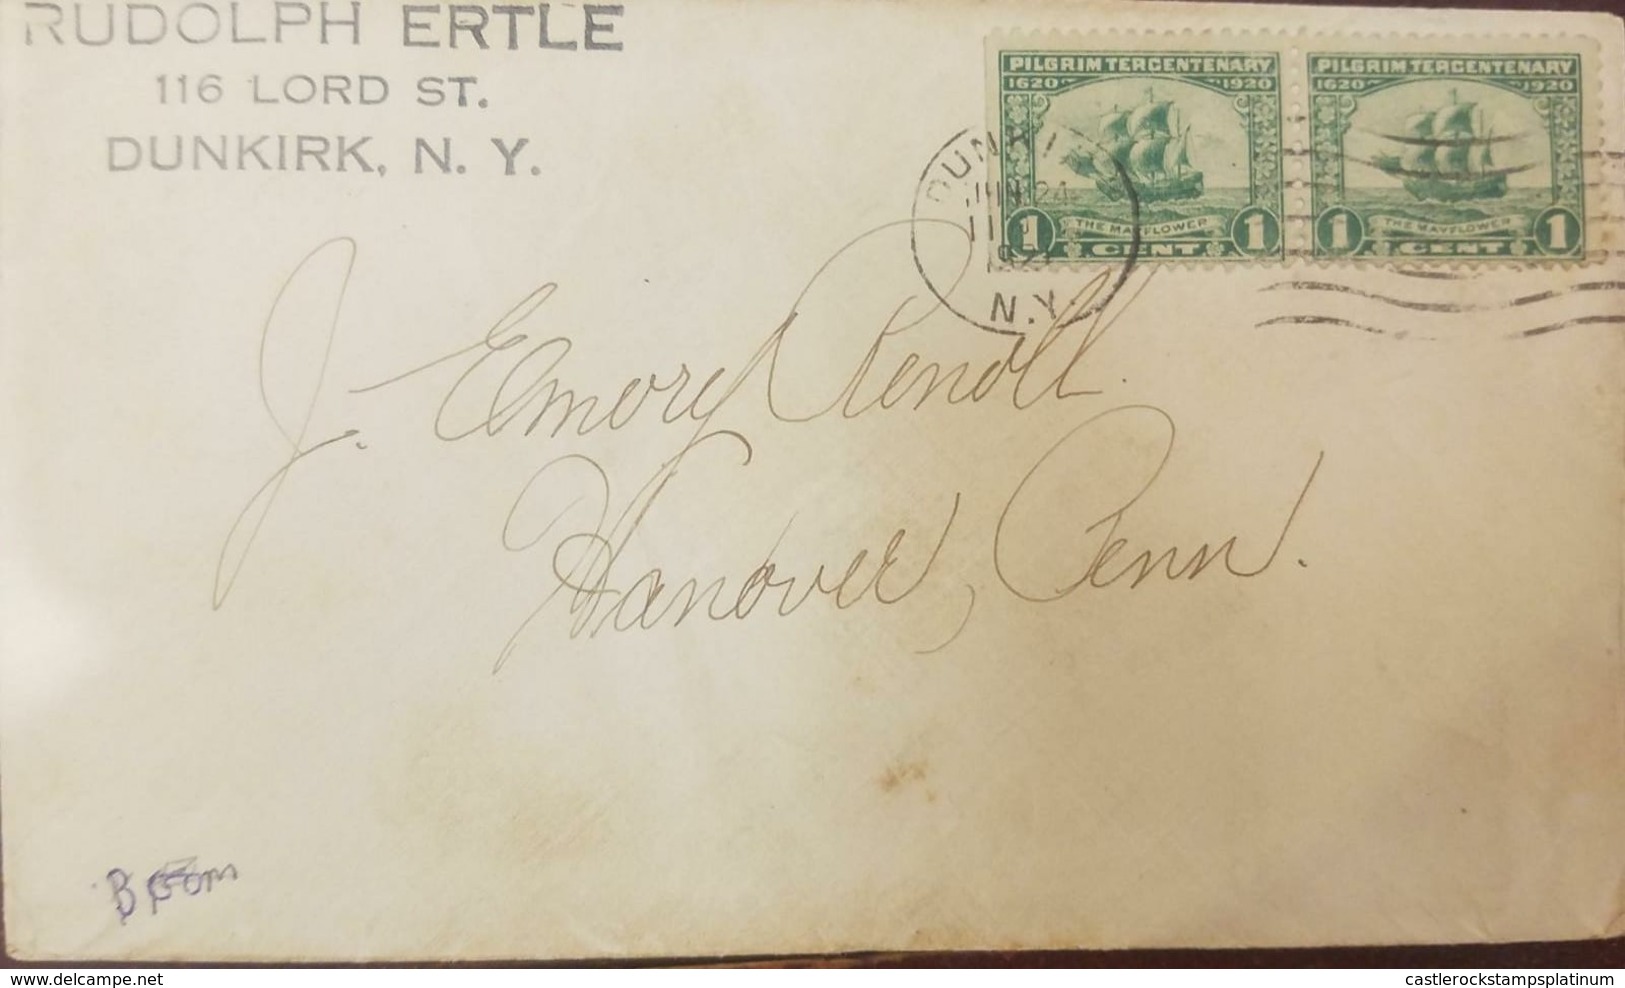 RUDOLPH ERTLE
116 LORD ST.
DUNKIRK, N. Y.
PILGRIM TERCENTENARY
1620 1920
THE MAYFLOWER
1 CENT 1
PILGRIM TERCENTENARY
1620 1920
THE MAYFLOWER
1 CENT 1
DUNKI
JUN 24
N.Y.
J. Emory Renoll.
Hanover, Penn.
delcampe.net
castlerockstampsplatinum